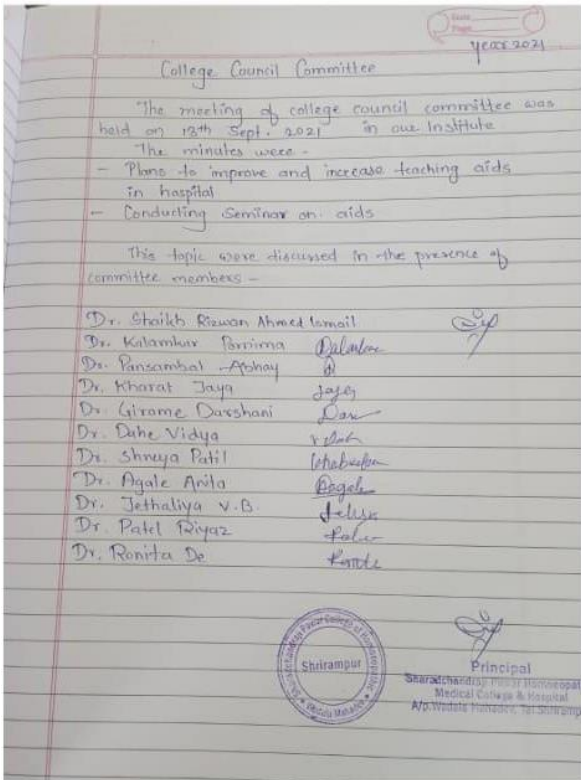 Date
Page
year 2021
College Council Committee
The meeting of college council committee was
held on 13th Sept. 2021 in our Institute
The minutes were -
- Plans to improve and increase teaching aids
in hospital
- Conducting Seminar on aids
This topic were discussed in the presence of
committee members -
Dr. Shaikh Rizwan Ahmed Ismail
Dr. Kalamkar Pornima
Dr. Pansambal Abhay
Dr. Kharat Jaya
Dr. Girame Darshani
Dr. Dahe Vidya
Dr. Shreya Patil
Dr. Agale Anita
Dr. Jethaliya V.B.
Dr. Patel Riyaz
Dr. Ronita De
Sharadchandraji Pawar College of Homoeopathic
Shrirampur
Wadala Mahadev
Principal
Sharadchandraji Pawar Homoeopat
Medical College & Hospital
A/p. Wadala Mahadev, Tal. Shriramp